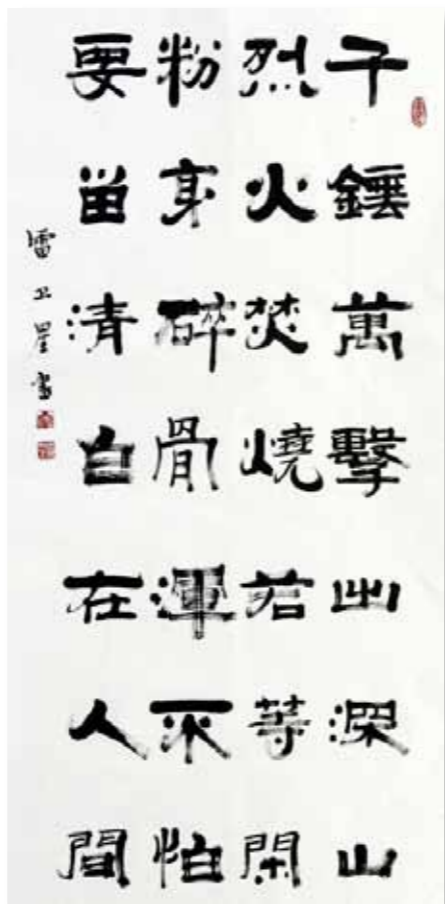 千錘萬擊出深山
烈火焚燒若等閑
粉身碎骨渾不怕
要留清白在人間
雷卫星書